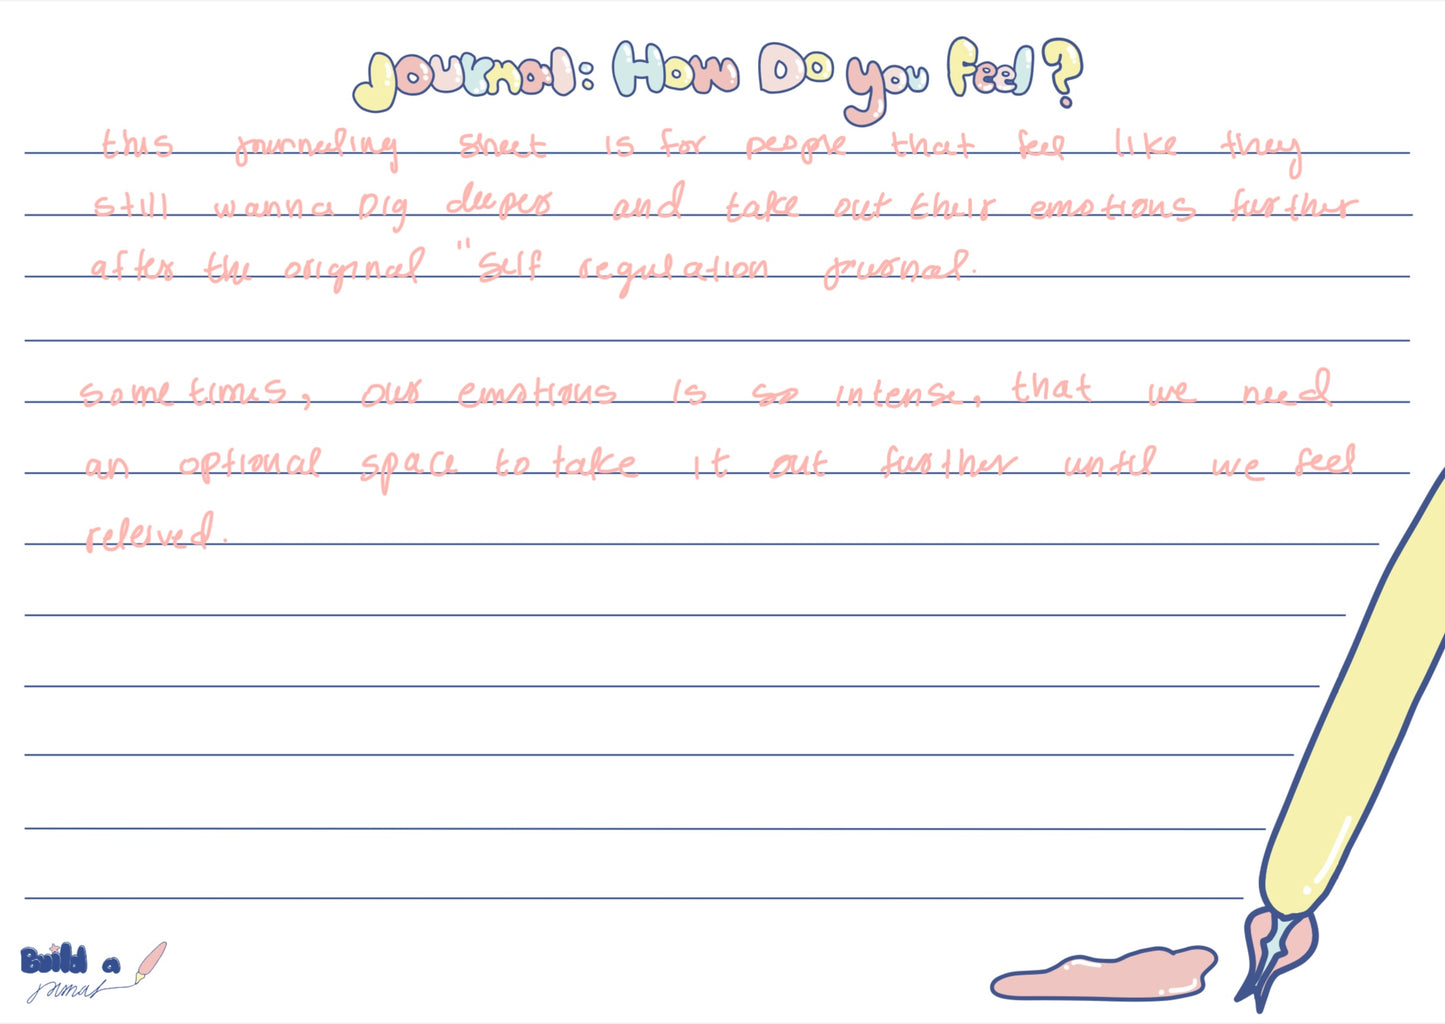 Journal: How Do you Feel?
this journaling sheet is for people that feel like they
still wanna Dig deeper and take out their emotions further
after the original "Self regulation journal.
sometimes, our emotions is so intense, that we need
an optional space to take it out further until we feel
releived.
Build a